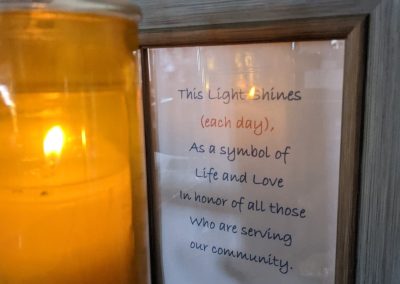 This Light Shines
(each day),
As a symbol of
Life and Love
In honor of all those
Who are serving
our community.